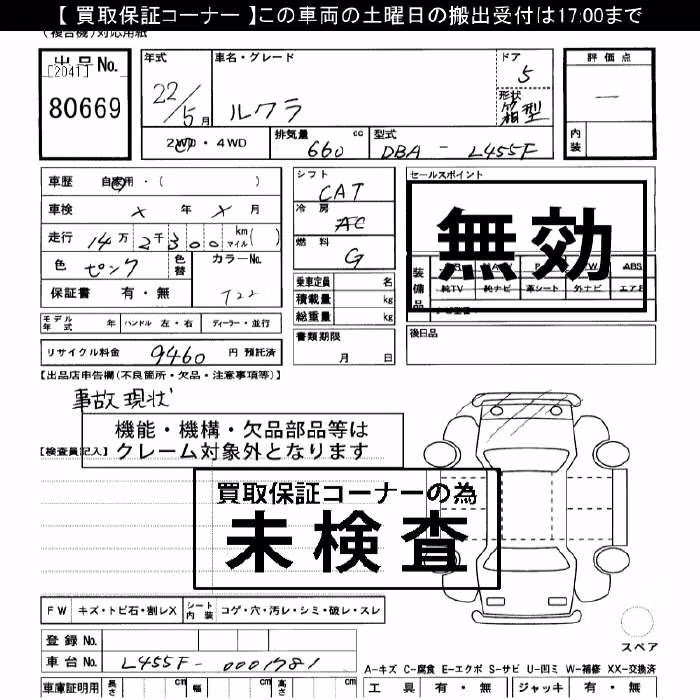 【 買取保証コーナー 】この車両の土曜日の搬出受付は17:00まで
(複合機)対応用紙
出品No.
[2041]
80669
年式
22/5月
車名・グレード
ルクラ
ドア
5
形状
箱型
評価点
—
内装
2WD・4WD
排気量 660 cc
型式 DBA - L455F
車歴 自家用・( )
車検 × 年 × 月
走行 14万2千300 km マイル( )
色 ピンク 色替
カラーNo. T22
保証書 有・無
シフト CAT
冷房 AC
燃料 G
乗車定員 名
積載量 kg
総重量 kg
セールスポイント
無効
装備品
ABS
純TV 純ナビ 革シート 外ナビ エアB
モデル年式 年 ハンドル 左・右 ディーラー・並行
書類期限 月 日
後日品
リサイクル料金 9460 円 預託済
【出品店申告欄(不良箇所・欠品・注意事項等)】
事故現状
機能・機構・欠品部品等は
クレーム対象外となります
【検査員記入】
買取保証コーナーの為
未検査
FW キズ・トビ石・割レX シート内装 コゲ・穴・汚レ・シミ・破レ・スレ
スペア
登録No.
車台No. L455F-0001781
A-キズ C-腐食 E-エクボ S-サビ U-凹ミ W-補修 XX-交換済
車庫証明用 長さ cm 幅 cm 高さ cm
工具 有・無 ジャッキ 有・無